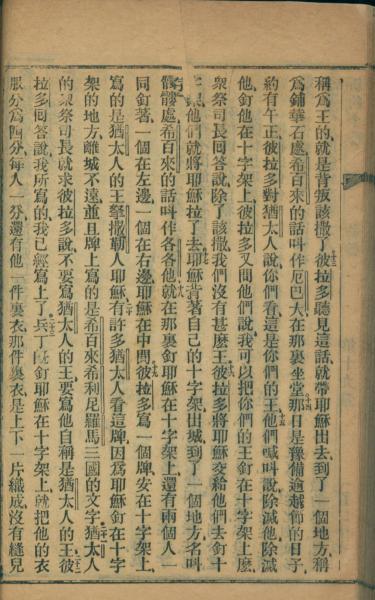 稱爲王的就是背叛該撒了彼拉多聽見這話就帶耶穌出去到了一個地方稱
爲鋪華石處希百來的話叫作厄巴大在那裏坐堂那日是豫備逾越節的日子
約有午正彼拉多對猶太人說你們看這是你們的王他們喊叫說除滅他除滅
他釘他在十字架上彼拉多又問他們說我可以把你們的王釘在十字架上麽
衆祭司長回答說除了該撒我們沒有甚麽王彼拉多將耶穌交給他們去釘十
字架他們就將耶穌拉了去耶穌背著自己的十字架出城到了一個地方名叫
髑髏處希百來的話叫作各各他就在那裏釘耶穌在十字架上還有兩個人一
同釘著一個在左邊一個在右邊耶穌在中間彼拉多寫一個牌安在十字架上
寫的是猶太人的王拏撒勒人耶穌有許多猶太人看這牌因爲耶穌釘在十字
架的地方離城不遠並且牌上寫的是希百來希利尼羅馬三國的文字猶太人
的衆祭司長就求彼拉多說不要寫猶太人的王要寫他自稱是猶太人的王彼
拉多回答說我所寫的我已經寫上了兵丁旣釘耶穌在十字架上就把他的衣
服分爲四分每人一分還有他一件裏衣那件裏衣是上下一片織成沒有縫兒